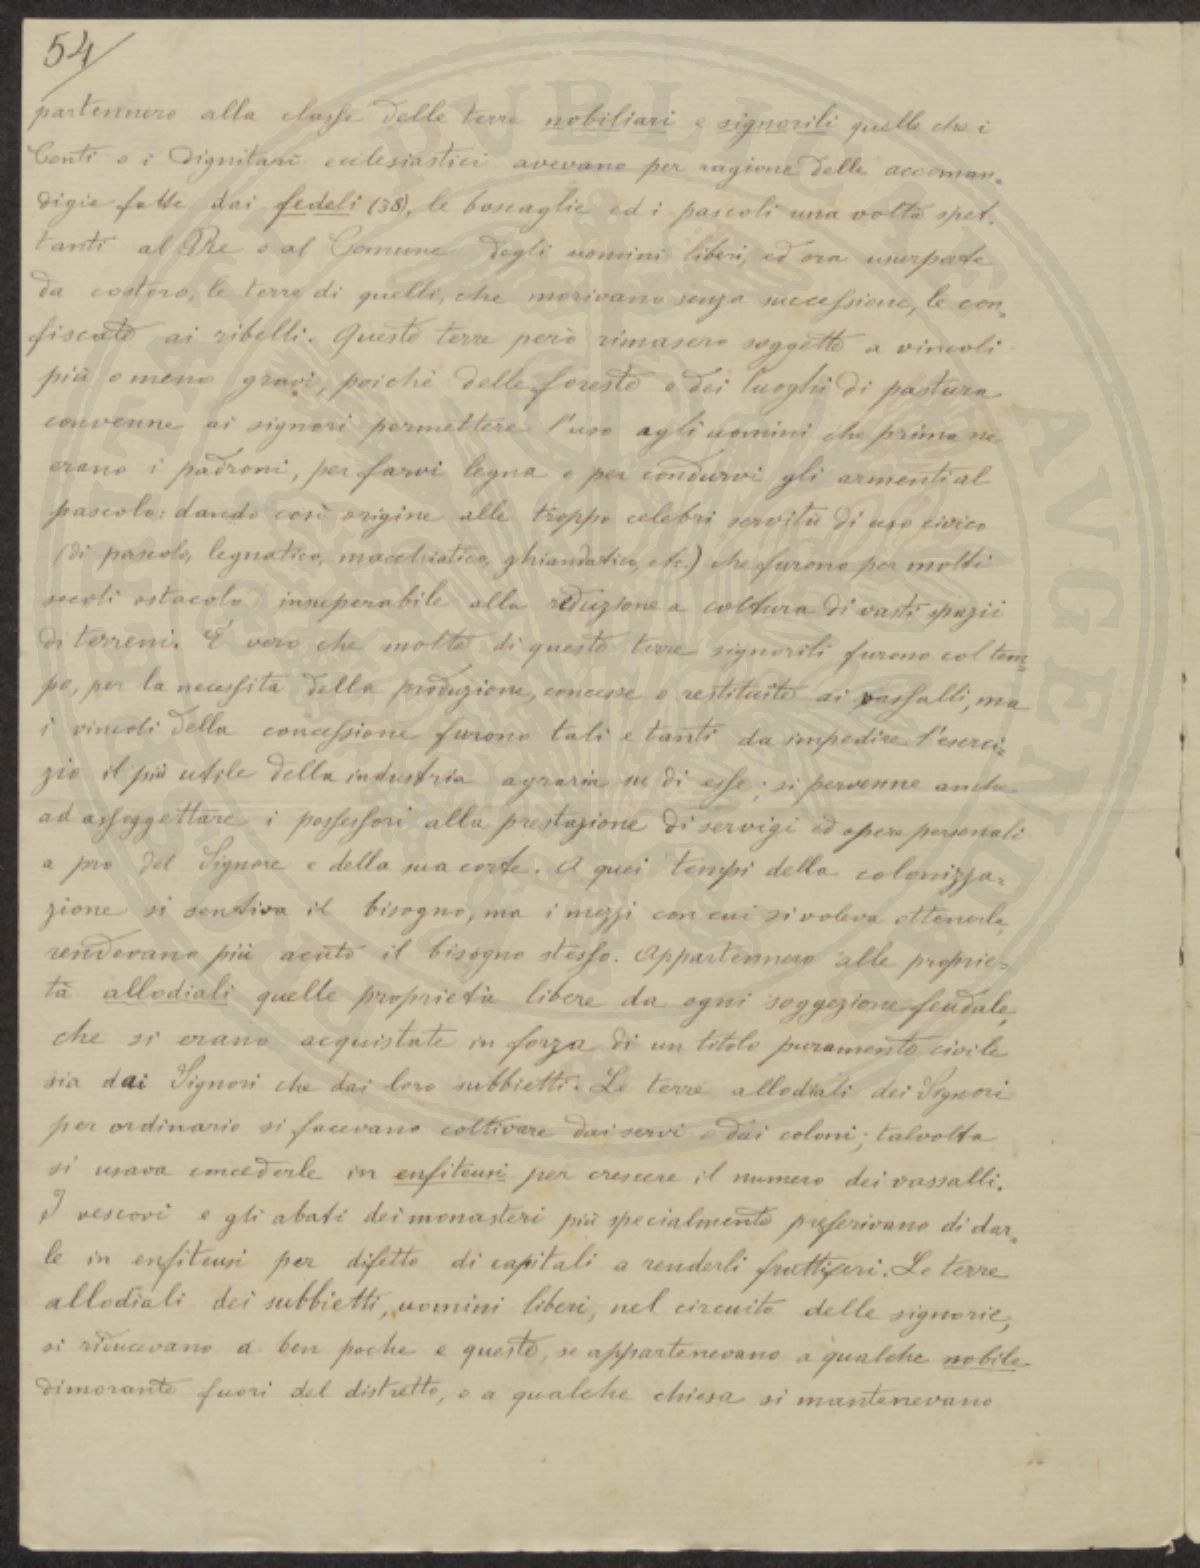 54
partennero alla classe delle terre nobiliari e signorili quelle che i
Conti o i dignitari ecclesiastici avevano per ragione delle accoman=
digie fatte dai fedeli (38), le boscaglie ed i pascoli una volta spet=
tanti al Re o al Comune degli uomini liberi, ed ora usurpate
da costoro, le terre di quelli, che morivano senza successione, le con=
fiscate ai ribelli. Queste terre però rimasero soggette a vincoli
più o meno gravi, poichè delle foreste e dei luoghi di pastura
convenne ai signori permettere l'uso agli uomini che prima ne
erano i padroni, per farvi legna e per condurvi gli armenti al
pascolo: dando così origine alle troppo celebri servitù di uso civico
(di pascolo, legnatico, macchiatico, ghiandatico, etc.) che furono per molti
secoli ostacolo insuperabile alla riduzione a coltura di vasti spazii
di terreni. È vero che molte di queste terre signorili furono col tem=
po, per la necessità della produzione, concesse o restituite ai vassalli, ma
i vincoli della concessione furono tali e tanti da impedire l'eserci=
zio il più utile della industria agraria su di esse; si pervenne anche
ad assoggettare i possessori alla prestazione di servigi ed opere personali
a pro del Signore e della sua corte. A quei tempi della colonizza=
zione si sentiva il bisogno, ma i mezzi con cui si voleva ottenerla,
rendevano più acuto il bisogno stesso. Appartennero alle proprie=
tà allodiali quelle proprietà libere da ogni soggezione feudale,
che si erano acquistate in forza di un titolo puramente civile
sia dai Signori che dai loro subbietti. Le terre allodiali dei Signori
per ordinario si facevano coltivare dai servi o dai coloni; talvolta
si usava concederle in enfiteusi per crescere il numero dei vassalli.
I vescovi e gli abati dei monasteri più specialmente preferivano di dar=
le in enfiteusi per difetto di capitali a renderli fruttiferi. Le terre
allodiali dei subbietti, uomini liberi, nel circuito delle signorie,
si riducevano a ben poche e queste, se appartenevano a qualche nobile
dimorante fuori del distretto, o a qualche chiesa si mantenevano